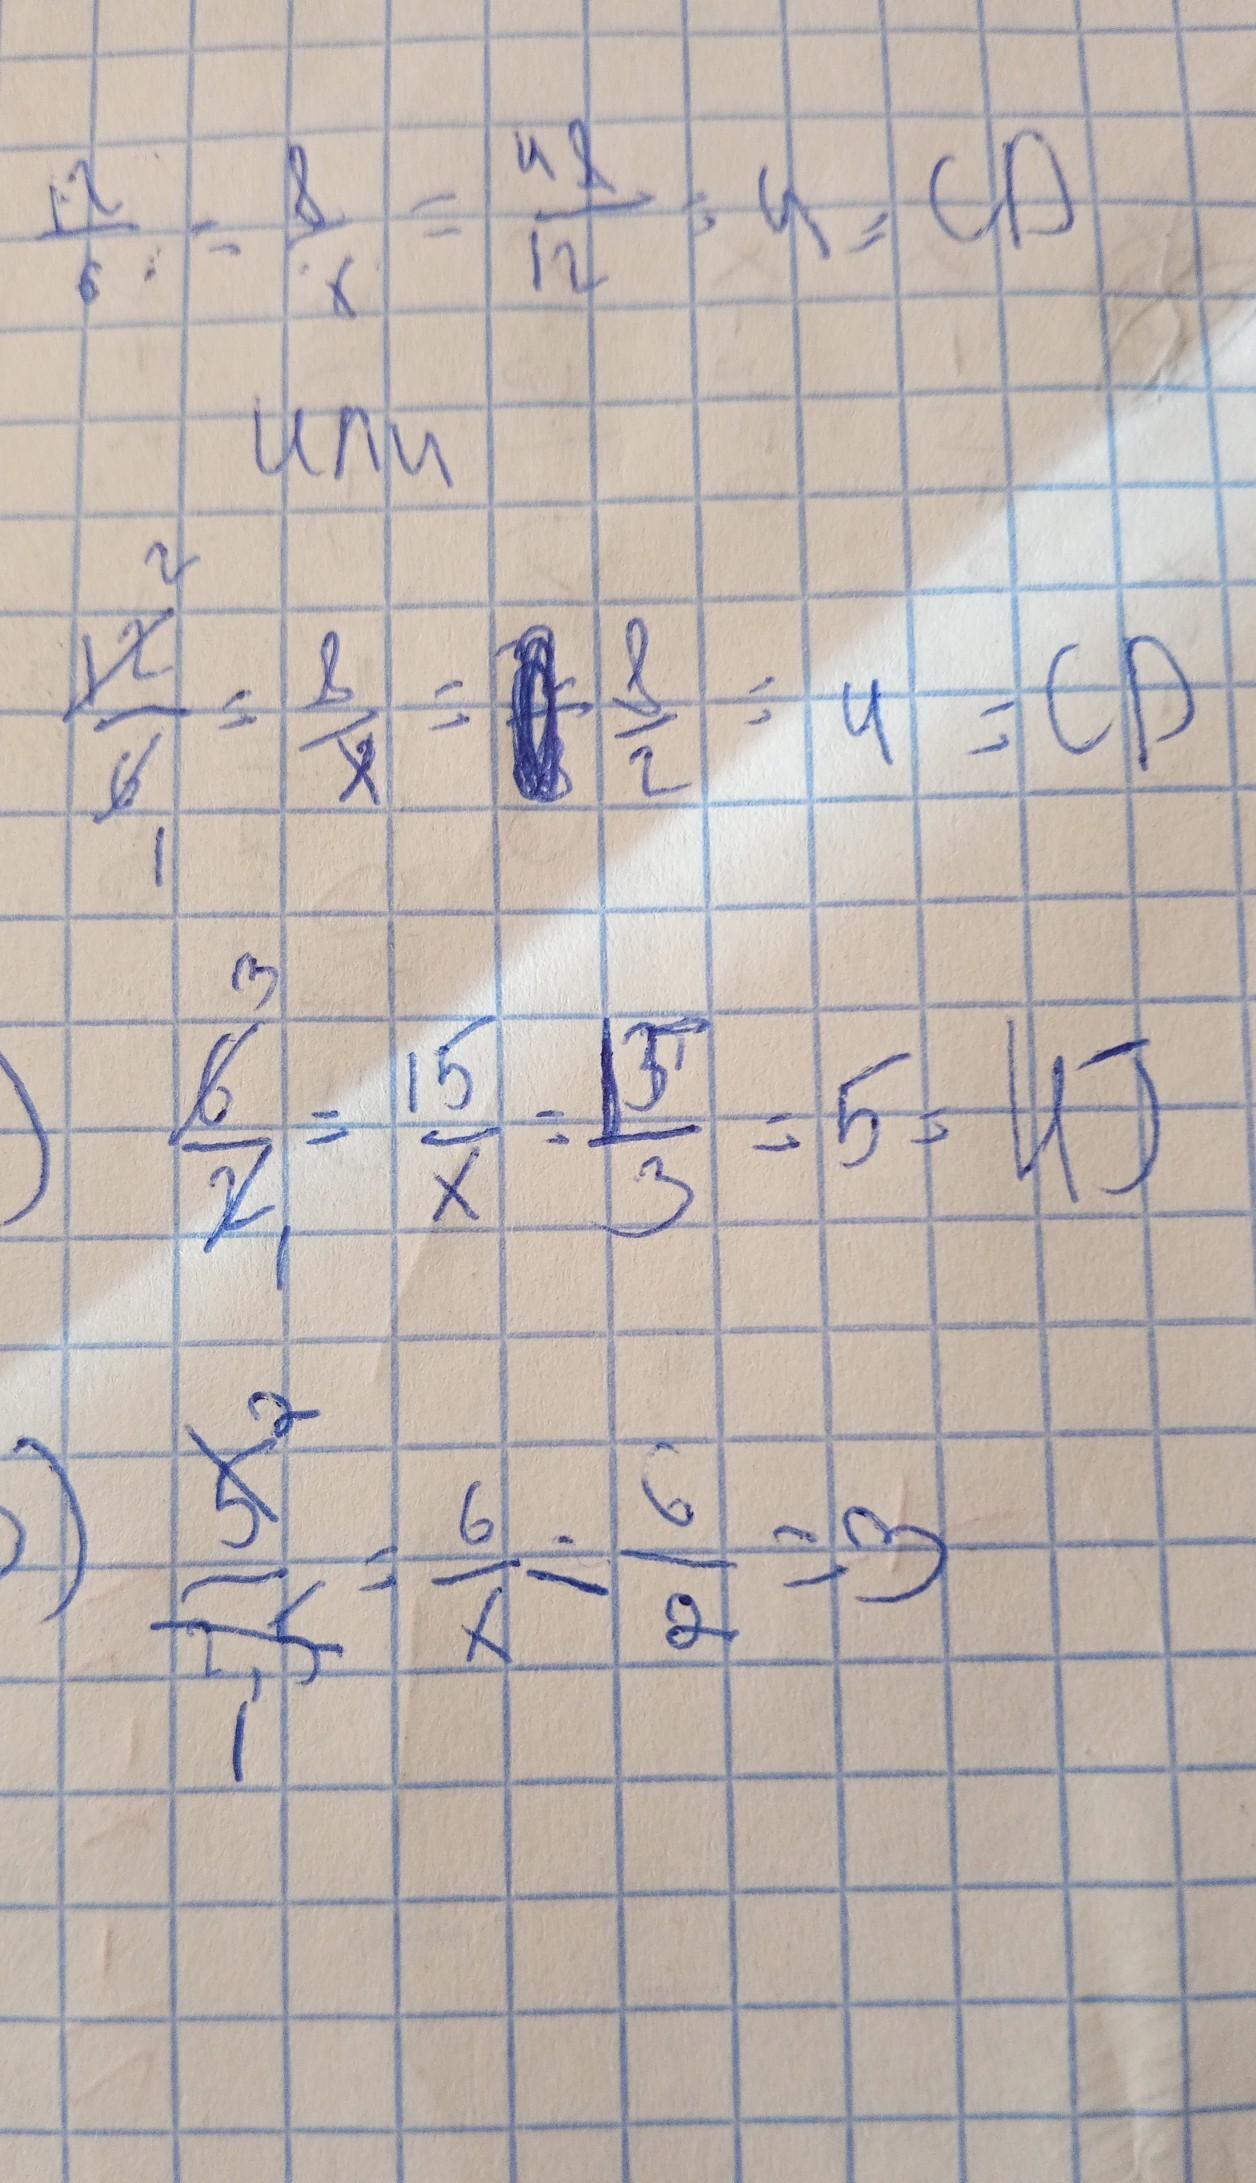 12/6 = 8/x = 48/12 = 4 = CD
или
2
12/6 = 8/x = 8/2 = 4 = CD
1
3
) 6/2 = 15/x = 15/3 = 5 =
1
2
) 5/2,5 = 6/x = 6/2 = 3
1